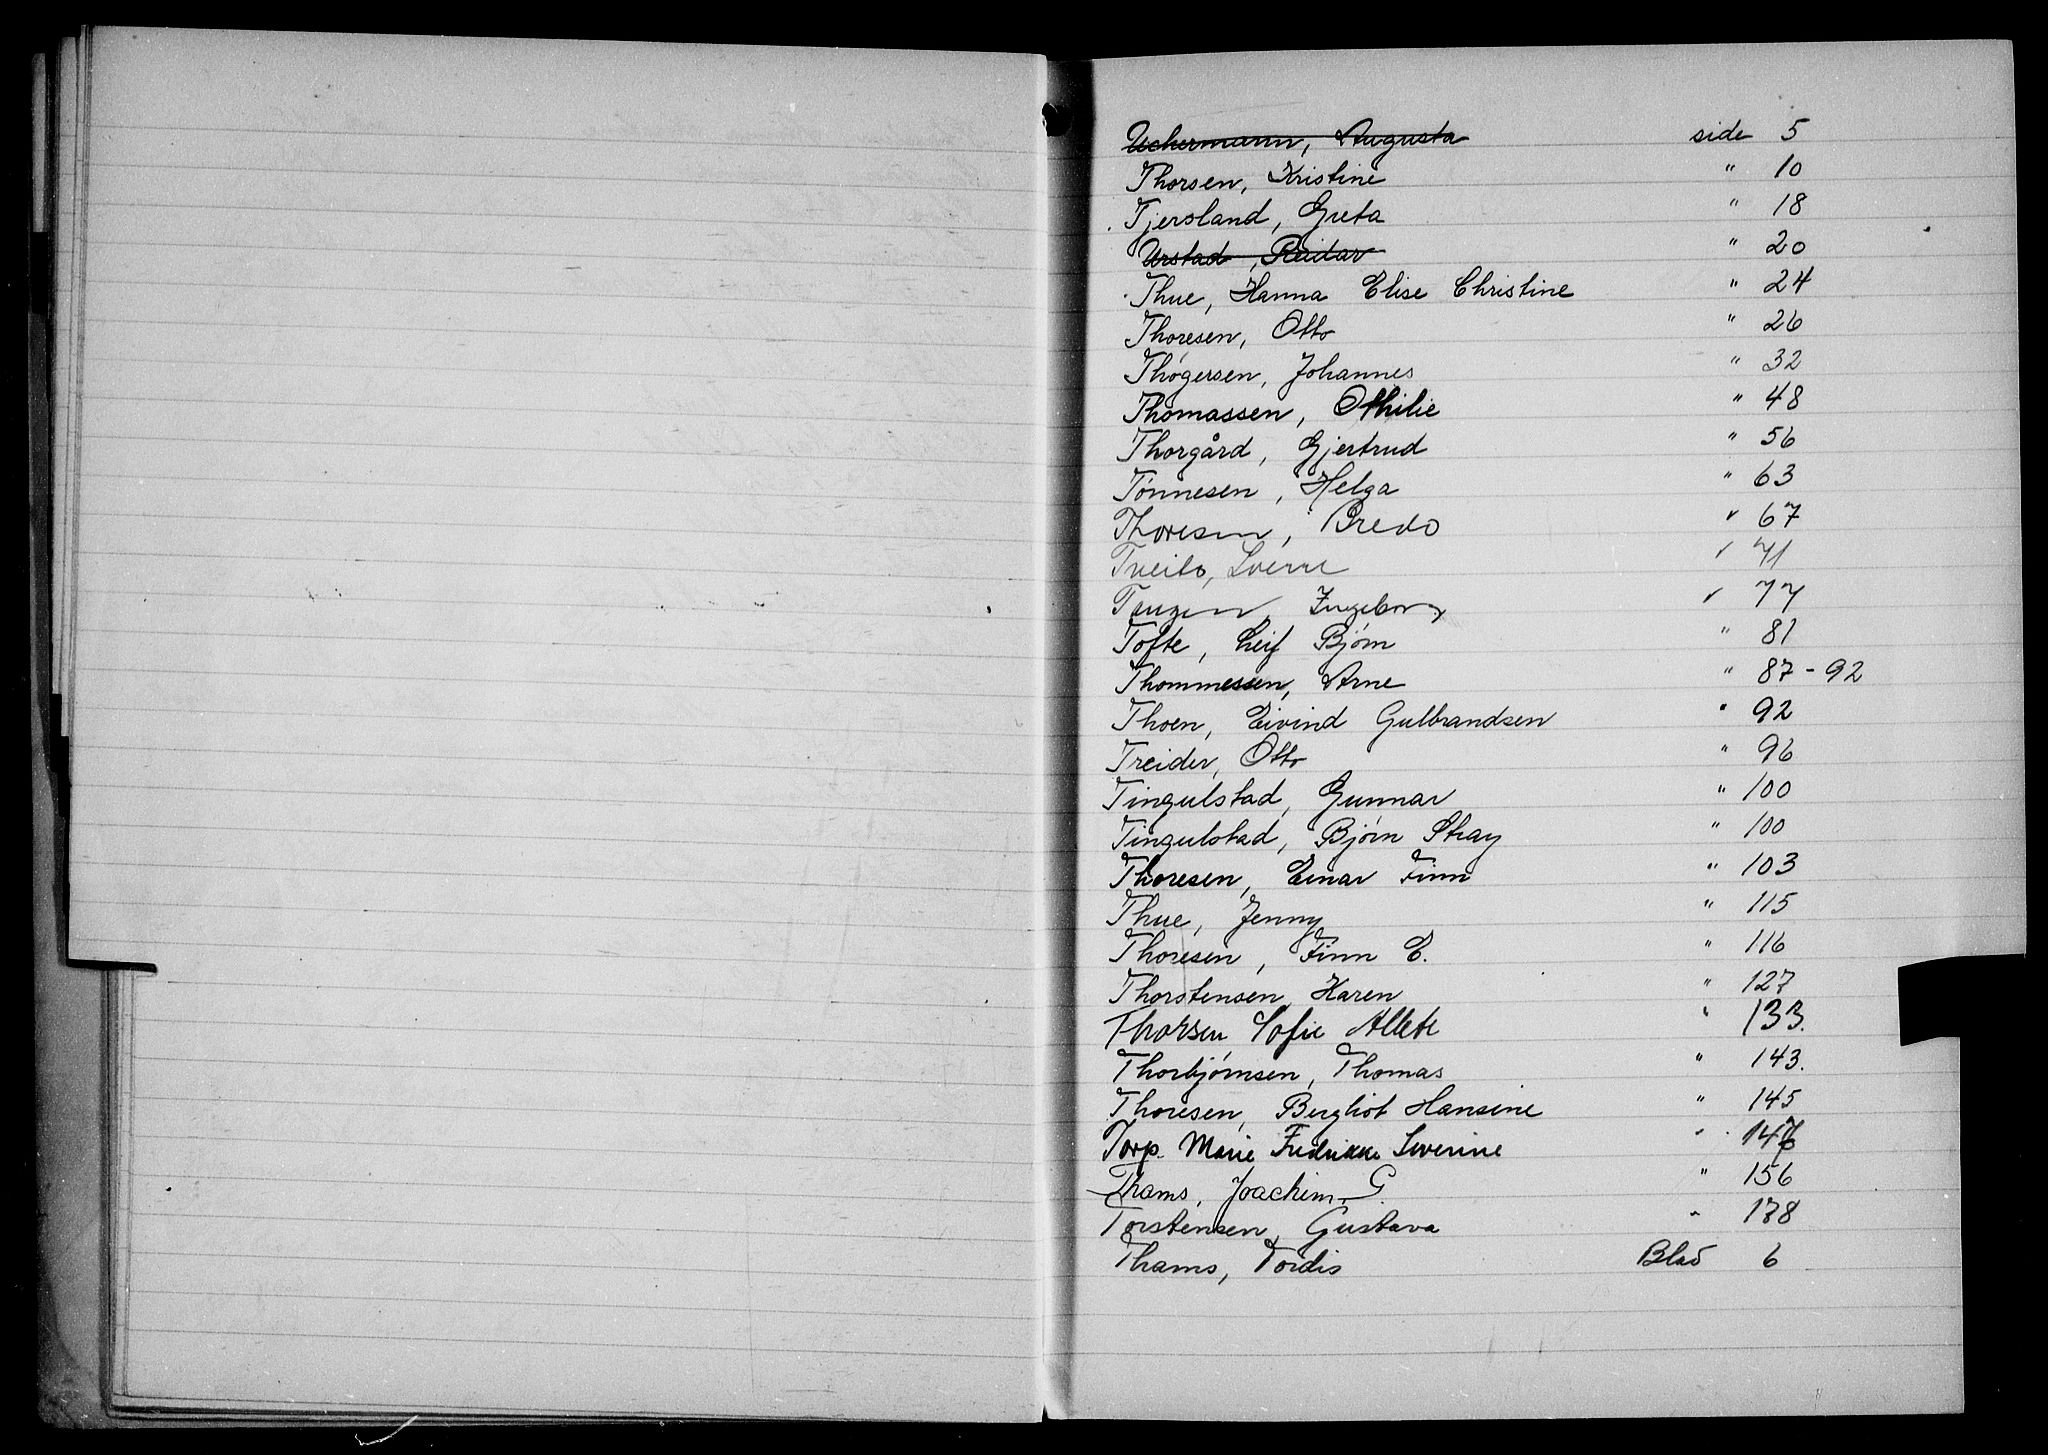 Uchermann, Augusta side 5
Thorsen, Kristine " 10
Tjersland, Greta " 18
Urstad, Reidar " 20
Thue, Hanna Elise Christine " 24
Thoresen, Otto " 26
Thøgersen, Johannes " 32
Thomassen, Othilie " 48
Thorgård, Gjertrud " 56
Tønnesen, Helga " 63
Thoresen, Bredo " 67
Tveito, Sverre " 71
Tangen, Ingeborg " 77
Tofte, Leif Bjørn " 81
Thommessen, Arne " 87-92
Thoen, Eivind Gulbrandsen " 92
Treider, Otto " 96
Tingulstad, Gunnar " 100
Tingulstad, Bjørn Stray " 100
Thoresen, Einar Finn " 103
Thue, Jenny " 115
Thoresen, Finn E. " 116
Thorstensen, Karen " 127
Thorsen Sofie Allete " 133.
Thorbjørnsen, Thomas " 143.
Thoresen, Bergliot Hansine " 145
Torp. Marie Fredrikke Severine "
Thams, Joachim G. " 156
Torstensen, Gustava " 178
Thams, Tordis Blad 6